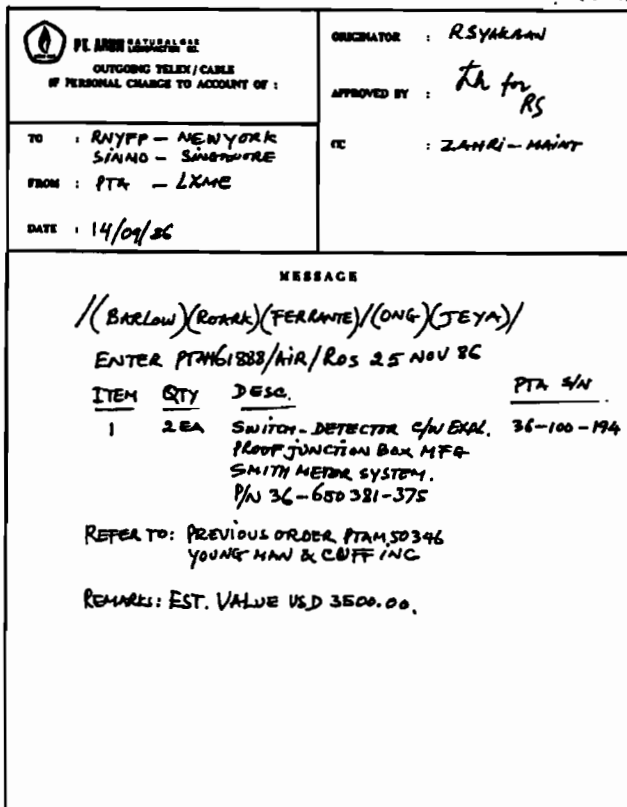 PT. ARUN NATURAL GAS LIQUEFACTION CO.
OUTGOING TELEX / CABLE
IF PERSONAL CHARGE TO ACCOUNT OF :
ORIGINATOR : RSYAKRAN
APPROVED BY : for RS
TO : RNYFP - NEWYORK
SINMO - SINGAPORE
CC : ZAHRI - MAINT
FROM : PTA - LXME
DATE : 14/09/86
MESSAGE
/(BARLOW)(ROARK)(FERRANTE)/(ONG)(JEYA)/
ENTER PTAM61888/AIR/ROS 25 NOV 86
ITEM QTY DESC. PTA S/N
1 2 EA SWITCH-DETECTOR C/W EXPL. 36-100-194
PROOF JUNCTION BOX MFG
SMITH METER SYSTEM.
P/N 36-650 381-375
REFER TO: PREVIOUS ORDER PTAM 50346
YOUNG MAN & CUFF INC
REMARKS: EST. VALUE USD 3500.00.